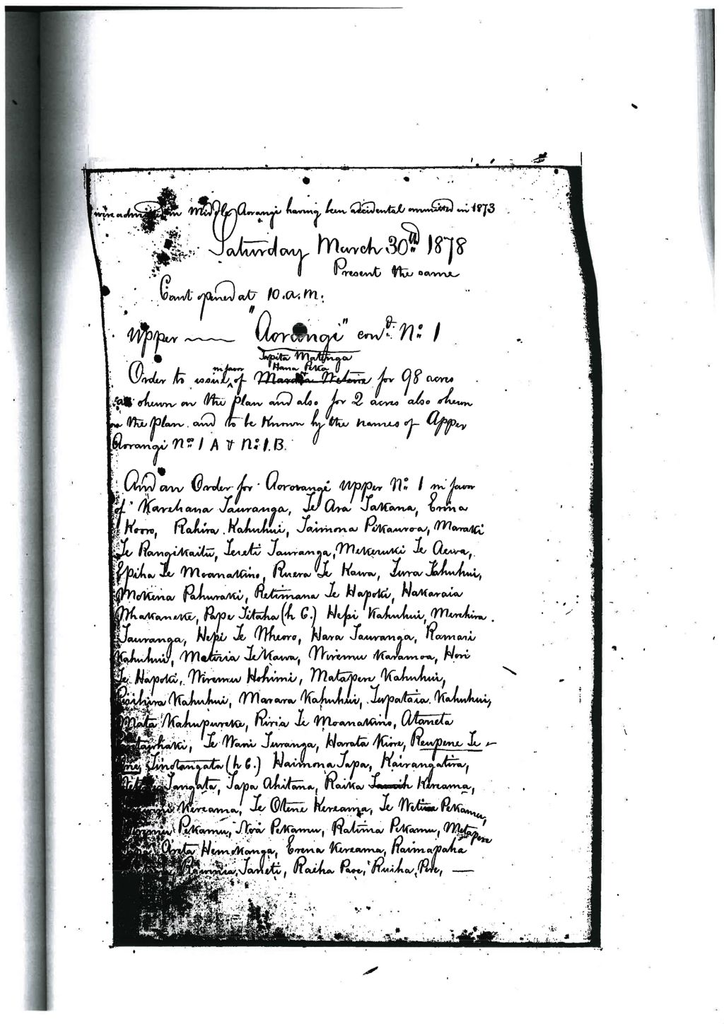 in Middle Aorangi having been accidental ommitted in 1873
Saturday March 30th 1878
Present the same
Court opened at 10. a.m.
Upper — "Aorangi" cond. No. 1
Order to issue in favor of Hana Peka for 98 acres
as shewn on the plan and also for 2 acres also shewn
on the plan and to be known by the names of Upper
Aorangi No. 1 A & No. 1.B.
And an Order for Aororangi Upper No. 1 in favor
of Karehana Tauranga, Te Ara Takana, Erina
Koro, Rahira Kahuhui, Taimona Pikauroa, Maraki
Te Rangikaitu, Tereti Tauranga, Mekeruki Te Aewa,
Epiha Te Moanakino, Ruera Te Kawa, Tura Kahuhui,
Mokena Pahuraki, Retimana Te Hapoki, Hakaraia
Whakaneke, Pape Titaha (h C.) Hepi Kahuhui, Merehira
Tauranga, Hepi Te Wheoro, Hara Tauranga, Ramari
Kahuhui, Materia Te Kawa, Wiremu Karamoa, Hori
Te Hapoki, Wiremu Hohimi, Matapere Kahuhui,
Kahuhui, Marara Kahuhui, Tupataia Kahuhui,
Mata Kahupureke, Riria Te Moanakino, Ataneta
Te Wani Turanga, Harata Kiore, Reupene Te
Tinotangata (h C.) Haimona Tapa, Kairangatira,
Tangata, Tapa Ahitana, Raika Kereama,
Kereama, Te Otene Kereama, Te Wetini Pekamu,
Pekamu, Noa Pekamu, Ratima Pekamu, Matapere
Areta Hemokanga, Erena Kereama, Raimapaha
Taneti, Raiha Paoe, Ruiha, Pere, —